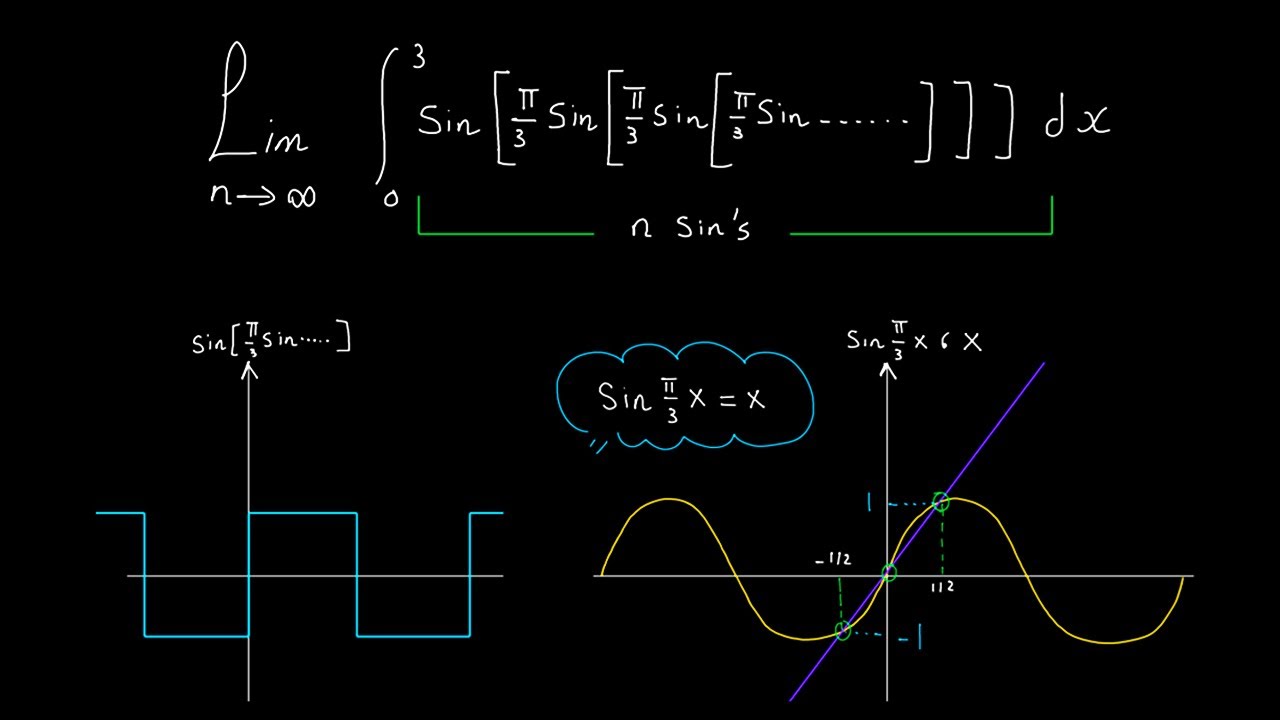 Lim n→∞ ∫₀³ Sin[π/3 Sin[π/3 Sin[π/3 Sin ......]]] dx
n Sin's
Sin[π/3 Sin.....]
Sin π/3 x = x
Sin π/3 x 6 x
1
-1/2
1/2
-1